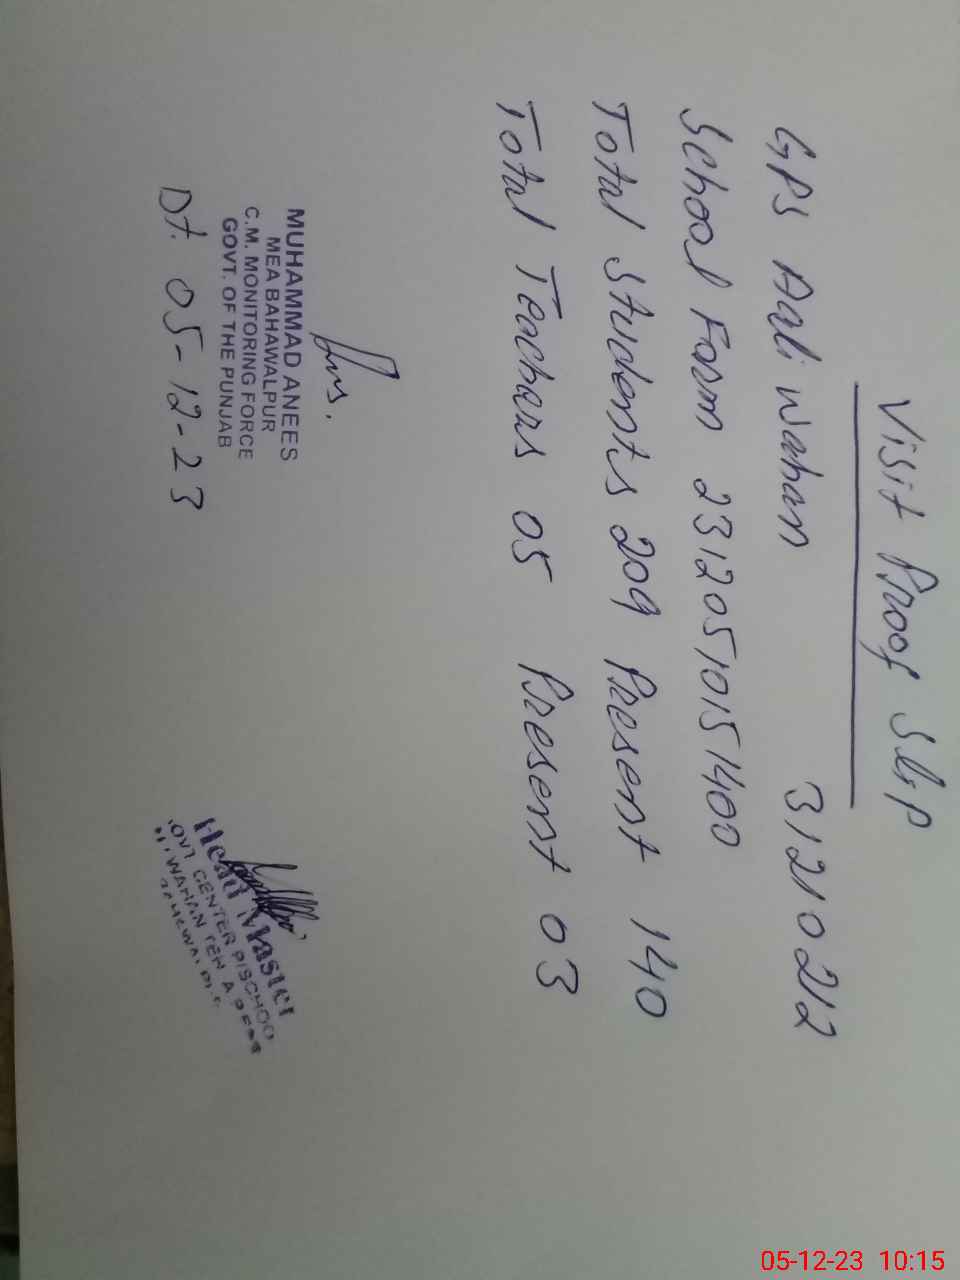 Visit Proof Slip
GPS Aali wahan 31210212
School Form 2312051015 1400
Total Students 209 Present 140
Total Teachers 05 Present 03
MUHAMMAD ANEES
MEA BAHAWALPUR
C.M. MONITORING FORCE
GOVT. OF THE PUNJAB
Dt. 05-12-23
Head Master
CENTER P/SCHOO
WAHAN TEH. A.P.
05-12-23 10:15